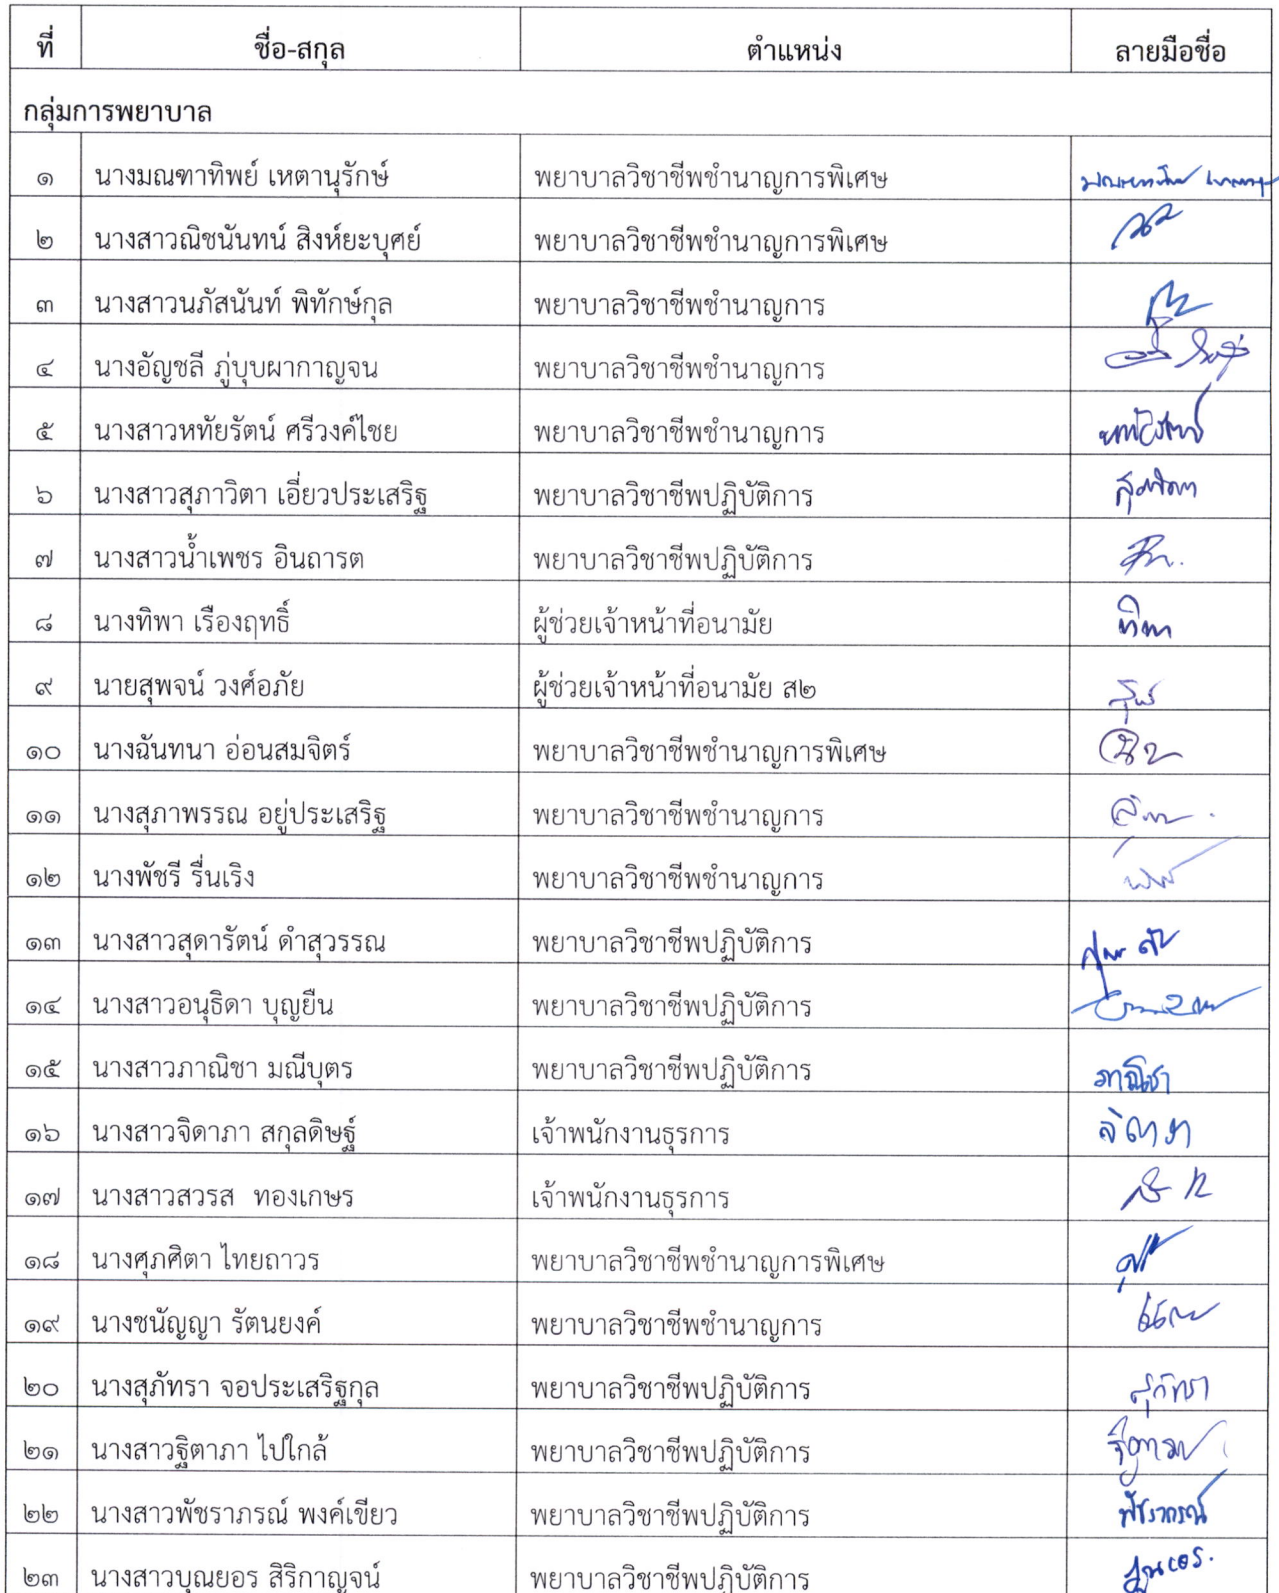 ที่ ชื่อ-สกุล ตำแหน่ง ลายมือชื่อ
กลุ่มการพยาบาล
๑ นางมณฑาทิพย์ เหตานุรักษ์ พยาบาลวิชาชีพชำนาญการพิเศษ
๒ นางสาวณิชนันทน์ สิงห์ยะบุศย์ พยาบาลวิชาชีพชำนาญการพิเศษ
๓ นางสาวนภัสนันท์ พิทักษ์กุล พยาบาลวิชาชีพชำนาญการ
๔ นางอัญชลี ภู่บุบผากาญจน พยาบาลวิชาชีพชำนาญการ
๕ นางสาวหทัยรัตน์ ศรีวงค์ไชย พยาบาลวิชาชีพชำนาญการ หทัยรัตน์
๖ นางสาวสุภาวิตา เอี่ยวประเสริฐ พยาบาลวิชาชีพปฏิบัติการ สุภาวิตา
๗ นางสาวน้ำเพชร อินถารต พยาบาลวิชาชีพปฏิบัติการ
๘ นางทิพา เรืองฤทธิ์ ผู้ช่วยเจ้าหน้าที่อนามัย ทิพา
๙ นายสุพจน์ วงศ์อภัย ผู้ช่วยเจ้าหน้าที่อนามัย ส๒
๑๐ นางฉันทนา อ่อนสมจิตร์ พยาบาลวิชาชีพชำนาญการพิเศษ
๑๑ นางสุภาพรรณ อยู่ประเสริฐ พยาบาลวิชาชีพชำนาญการ
๑๒ นางพัชรี รื่นเริง พยาบาลวิชาชีพชำนาญการ
๑๓ นางสาวสุดารัตน์ ดำสุวรรณ พยาบาลวิชาชีพปฏิบัติการ
๑๔ นางสาวอนุธิดา บุญยืน พยาบาลวิชาชีพปฏิบัติการ
๑๕ นางสาวภาณิชา มณีบุตร พยาบาลวิชาชีพปฏิบัติการ ภาณิชา
๑๖ นางสาวจิดาภา สกุลดิษฐ์ เจ้าพนักงานธุรการ จิดาภา
๑๗ นางสาวสวรส ทองเกษร เจ้าพนักงานธุรการ
๑๘ นางศุภศิตา ไทยถาวร พยาบาลวิชาชีพชำนาญการพิเศษ
๑๙ นางชนัญญา รัตนยงค์ พยาบาลวิชาชีพชำนาญการ
๒๐ นางสุภัทรา จอประเสริฐกุล พยาบาลวิชาชีพปฏิบัติการ สุภัทรา
๒๑ นางสาวฐิตาภา ไปใกล้ พยาบาลวิชาชีพปฏิบัติการ ฐิตาภา
๒๒ นางสาวพัชราภรณ์ พงค์เขียว พยาบาลวิชาชีพปฏิบัติการ พัชราภรณ์
๒๓ นางสาวบุณยอร สิริกาญจน์ พยาบาลวิชาชีพปฏิบัติการ